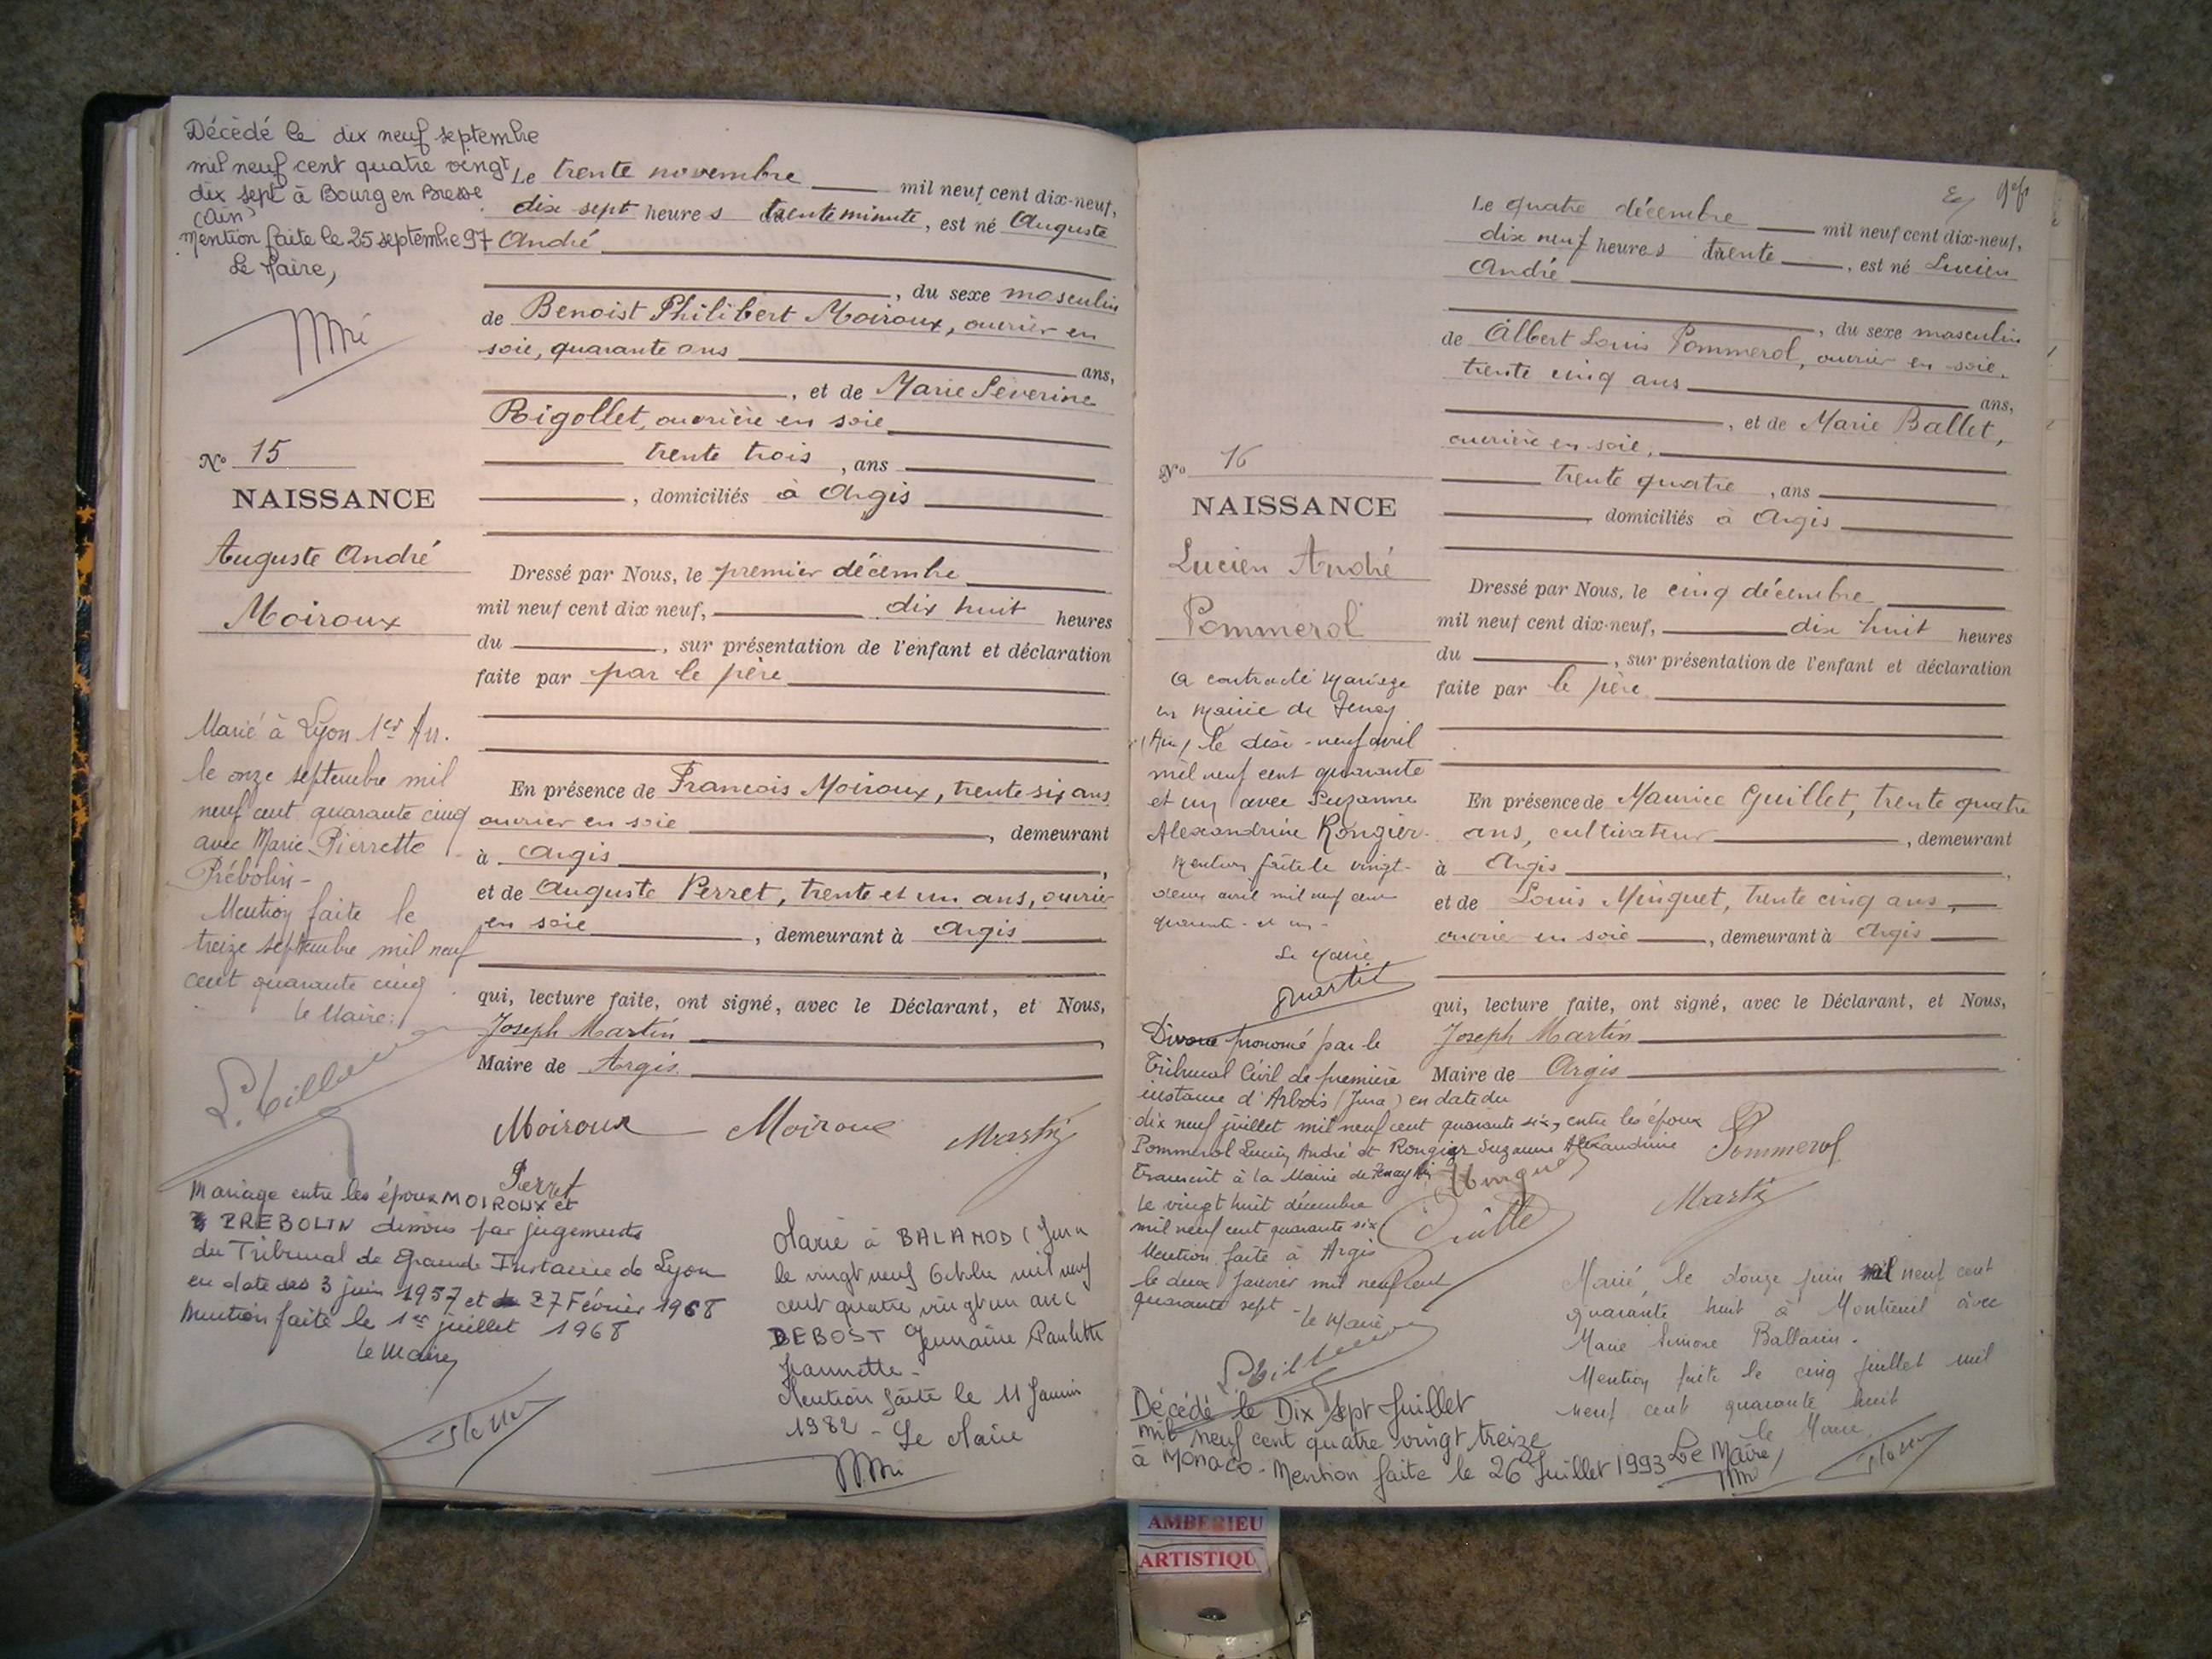 Décédé le dix neuf septembre
mil neuf cent quatre vingt
dix sept à Bourg en Bresse
(Ain)
Mention faite le 25 septembre 97
Le Maire,
N° 15
NAISSANCE
Auguste André
Moiroux
Marié à Lyon 1er Arr.
le onze septembre mil
neuf cent quarante cinq
avec Marie Pierrette
Prébolin -
Mention faite le
treize septembre mil neuf
cent quarante cinq
Le Maire:
Le trente novembre mil neuf cent dix-neuf,
dix sept heures trente minute, est né Auguste
André
, du sexe masculin
de Benoist Philibert Moiroux, ouvrier en
soie, quarante ans ans,
, et de Marie Séverine
Rigollet, ouvrière en soie
trente trois , ans
, domiciliés à Argis
Dressé par Nous, le premier décembre
mil neuf cent dix neuf, dix huit heures
du , sur présentation de l'enfant et déclaration
faite par par le père
En présence de Francois Moiroux, trente six ans
ouvrier en soie , demeurant
à Argis ,
et de Auguste Perret, trente et un ans, ouvrier
en soie , demeurant à Argis
qui, lecture faite, ont signé, avec le Déclarant, et Nous,
Joseph Martin ,
Maire de Argis
Moiroux Moiroux Martin
Perret
Mariage entre les époux MOIROUX et
PREBOLIN dissous par jugements
du Tribunal de Grande Instance de Lyon
en date des 3 juin 1957 et 27 Février 1968
Mention faite le 1er juillet 1968
Le Maire,
Marié à BALANOD (Jura
le vingt neuf Octobre mil neuf
cent quatre vingt un avec
DEBOST Germaine Paulette
Jeannette -
Mention faite le 11 Janvier
1982 - Le Maire
Le quatre décembre mil neuf cent dix-neuf,
dix neuf heures trente , est né Lucien
André
, du sexe masculin
de Albert Louis Pommerol, ouvrier en soie,
trente cinq ans ans,
, et de Marie Ballet,
ouvrière en soie,
trente quatre , ans
domiciliés à Argis
N° 16
NAISSANCE
Lucien André
Pommerol
Dressé par Nous, le cinq décembre
mil neuf cent dix-neuf, dix huit heures
du , sur présentation de l'enfant et déclaration
faite par le père
En présence de Maurice Guillet, trente quatre
ans, cultivateur , demeurant
à Argis ,
et de Louis Minguet, trente cinq ans,
ouvrier en soie , demeurant à Argis
qui, lecture faite, ont signé, avec le Déclarant, et Nous,
Joseph Martin
Maire de Argis
Pommerol
Martin
A contracté mariage
en Mairie de Tenay
(Ain) le dix-neuf avril
mil neuf cent quarante
et un avec Suzanne
Alexandrine Rongier.
Mention faite le vingt-
deux avril mil neuf cent
quarante-et un-
Le Maire
Martin
Divorce prononcé par le
Tribunal Civil de première
instance d'Arbois (Jura) en date du
dix neuf juillet mil neuf cent quarante six, entre les époux
Pommerol Lucien André et Rongier Suzanne Alexandrine
Transcrit à la Mairie de Tenay Ain
le vingt huit décembre
mil neuf cent quarante six
Mention faite à Argis
le deux Janvier mil neuf cent
quarante sept - Le Maire
Marié, le douze juin mil neuf cent
quarante huit à Montreuil avec
Marie Simone Ballarin.
Mention faite le cinq juillet mil
neuf cent quarante huit
le Maire,
Décédé le Dix sept Juillet
mil neuf cent quatre vingt treize
à Monaco - Mention faite le 26 Juillet 1993 Le Maire,
AMBERIEU
ARTISTIQU